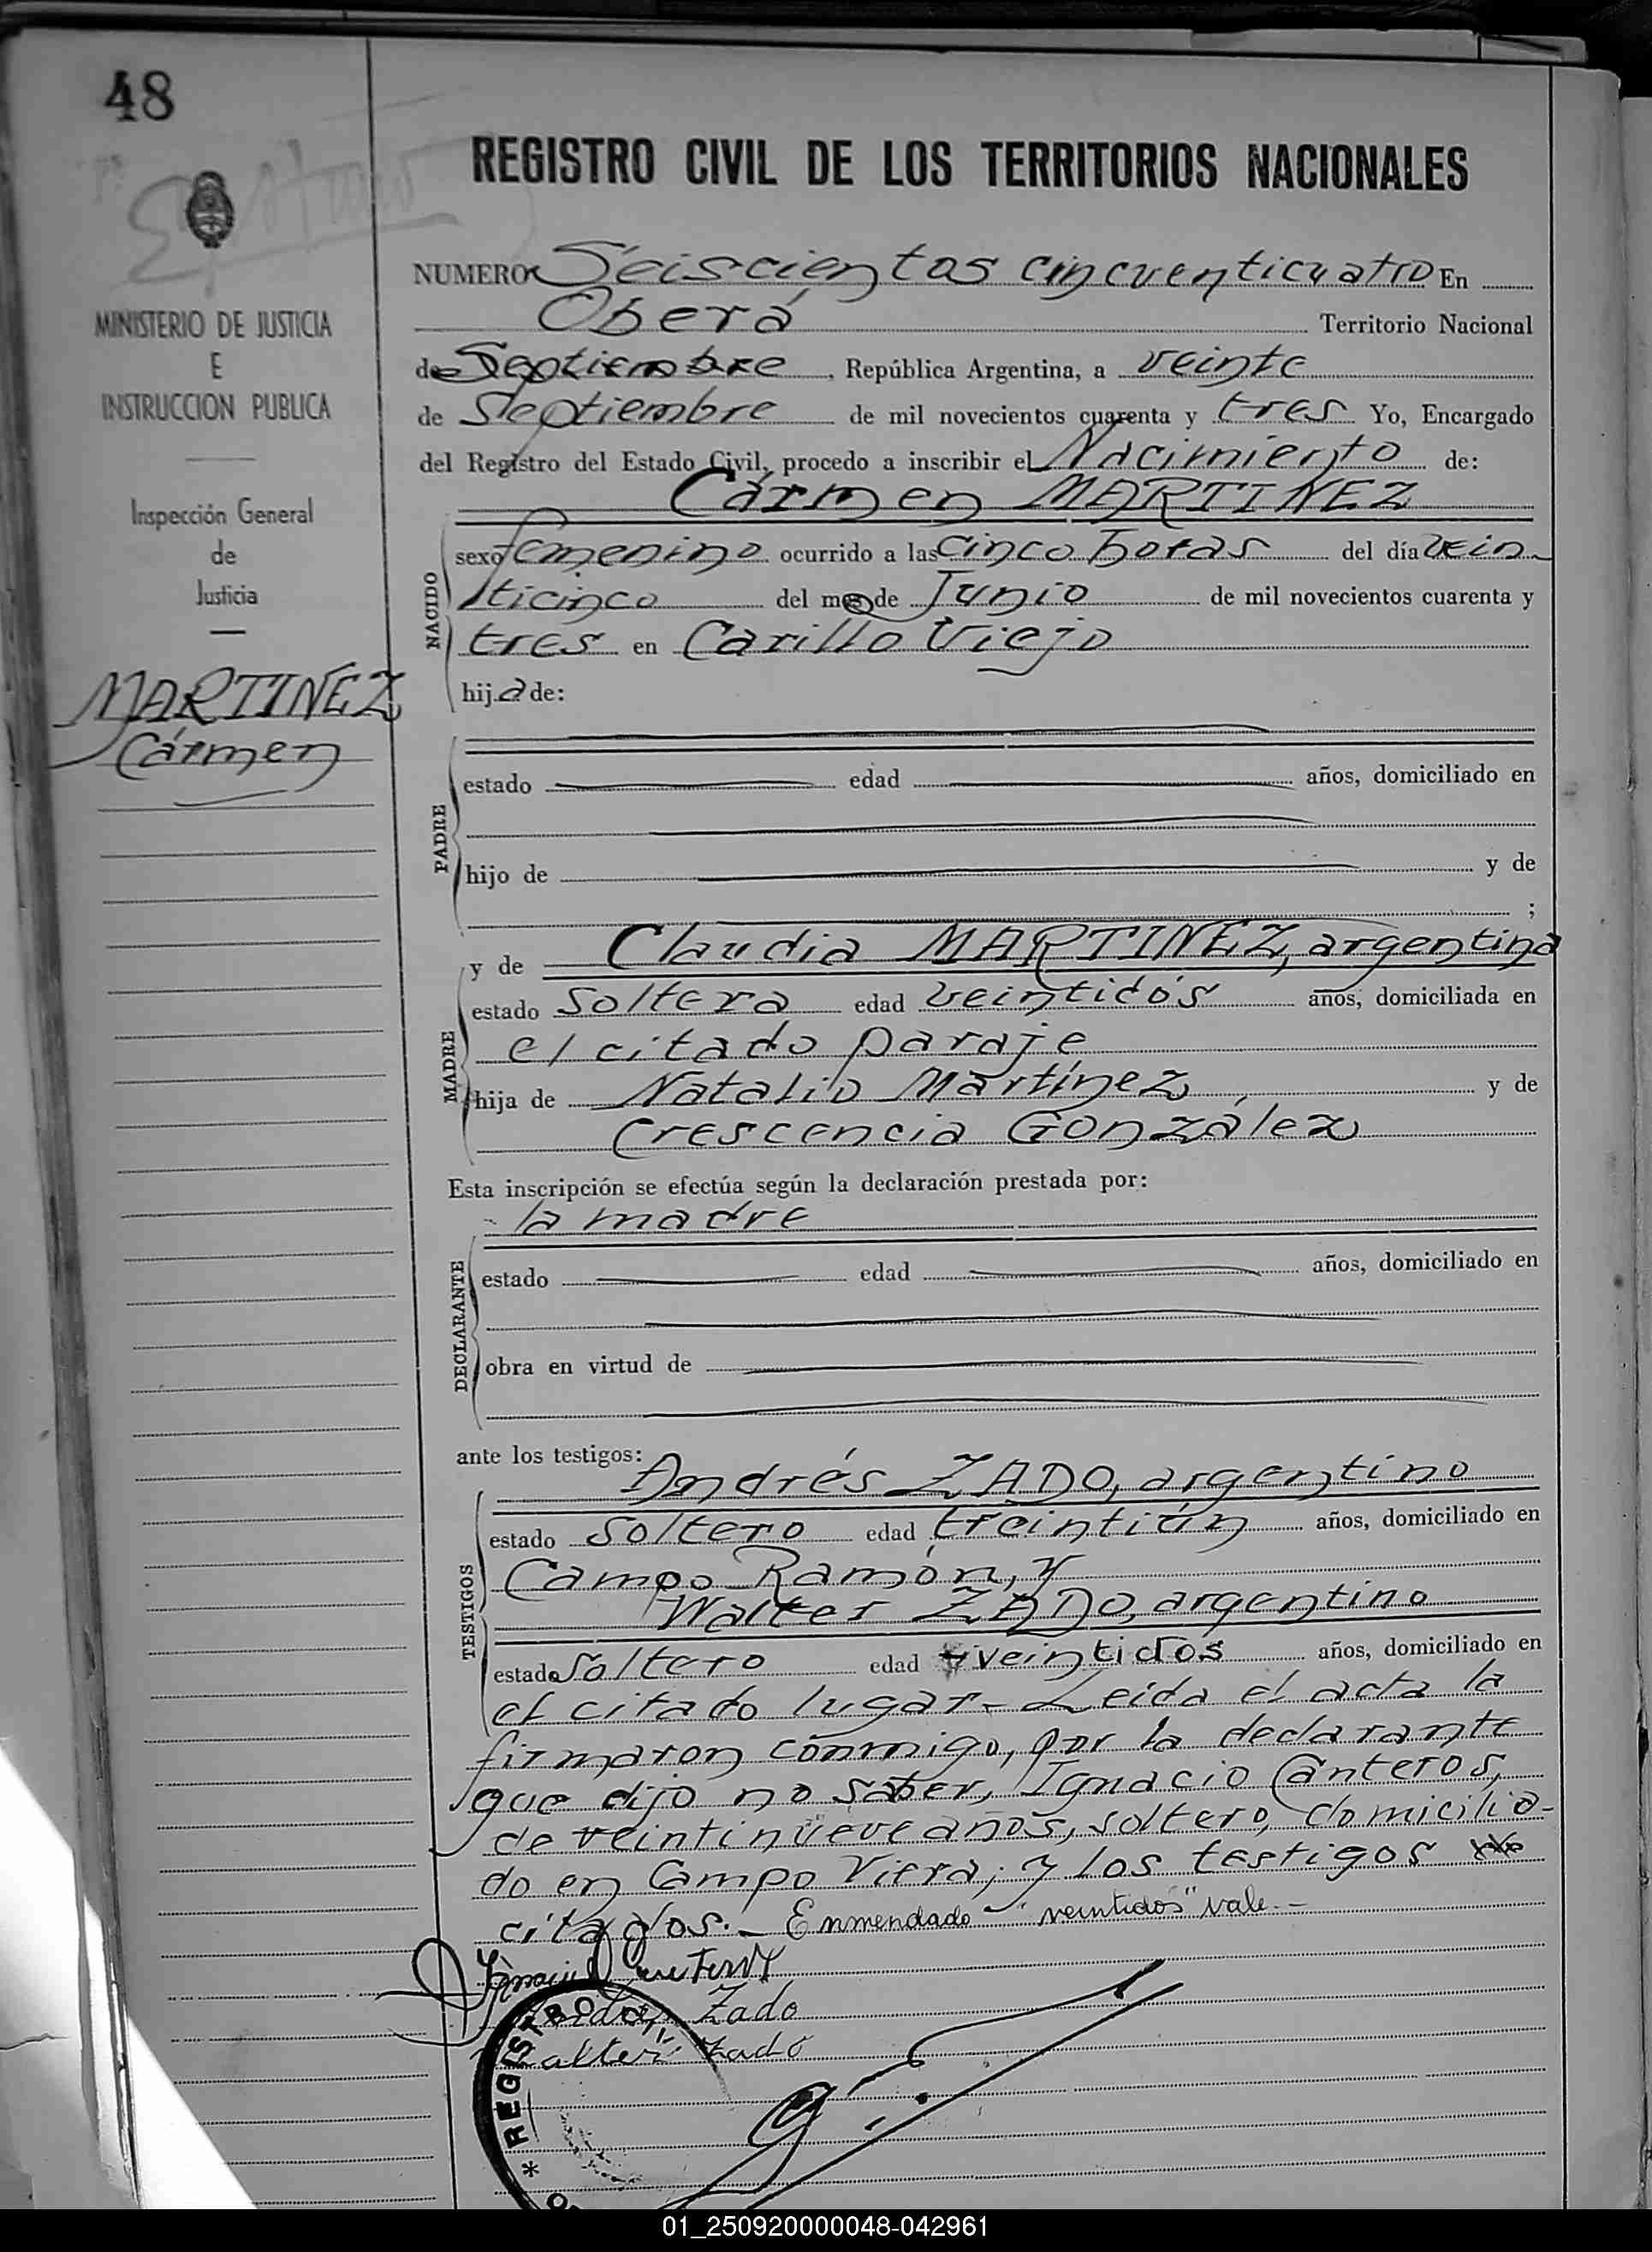 48
REGISTRO CIVIL DE LOS TERRITORIOS NACIONALES
MINISTERIO DE JUSTICIA
E
INSTRUCCION PUBLICA
Inspección General
de
Justicia
MARTINEZ
Cármen
NUMERO Seiscientos cincuenticuatro En
Oberá Territorio Nacional
de Septiembre, República Argentina, a veinte
de Septiembre de mil novecientos cuarenta y tres Yo, Encargado
del Registro del Estado Civil, procedo a inscribir el Nacimiento de:
Cármen MARTINEZ
NACIDO
sexo femenino ocurrido a las cinco horas del día vein
ticinco del mes de Junio de mil novecientos cuarenta y
tres en Carillo Viejo
hija de:
PADRE
estado edad años, domiciliado en
hijo de y de
;
y de Claudia MARTINEZ, argentina
MADRE
estado soltera edad veintidós años, domiciliada en
el citado paraje
hija de Natalio Martínez y de
Crescencia González
Esta inscripción se efectúa según la declaración prestada por:
la madre
DECLARANTE
estado edad años, domiciliado en
obra en virtud de
ante los testigos:
Andrés ZADO, argentino
TESTIGOS
estado soltero edad treintiún años, domiciliado en
Campo Ramón, y
Walter ZADO, argentino
estado soltero edad veintidos años, domiciliado en
el citado lugar.- Leida el acta la
firmaron conmigo, por la declarante
que dijo no saber, Ignacio Canteros,
de veintinueve años, soltero, domicilia-
do en Campo Viera; y los testigos
citados.- Enmendado "veintidós" vale.-
Zado
Walter Zado
REGISTRO CIVIL
01_250920000048-042961